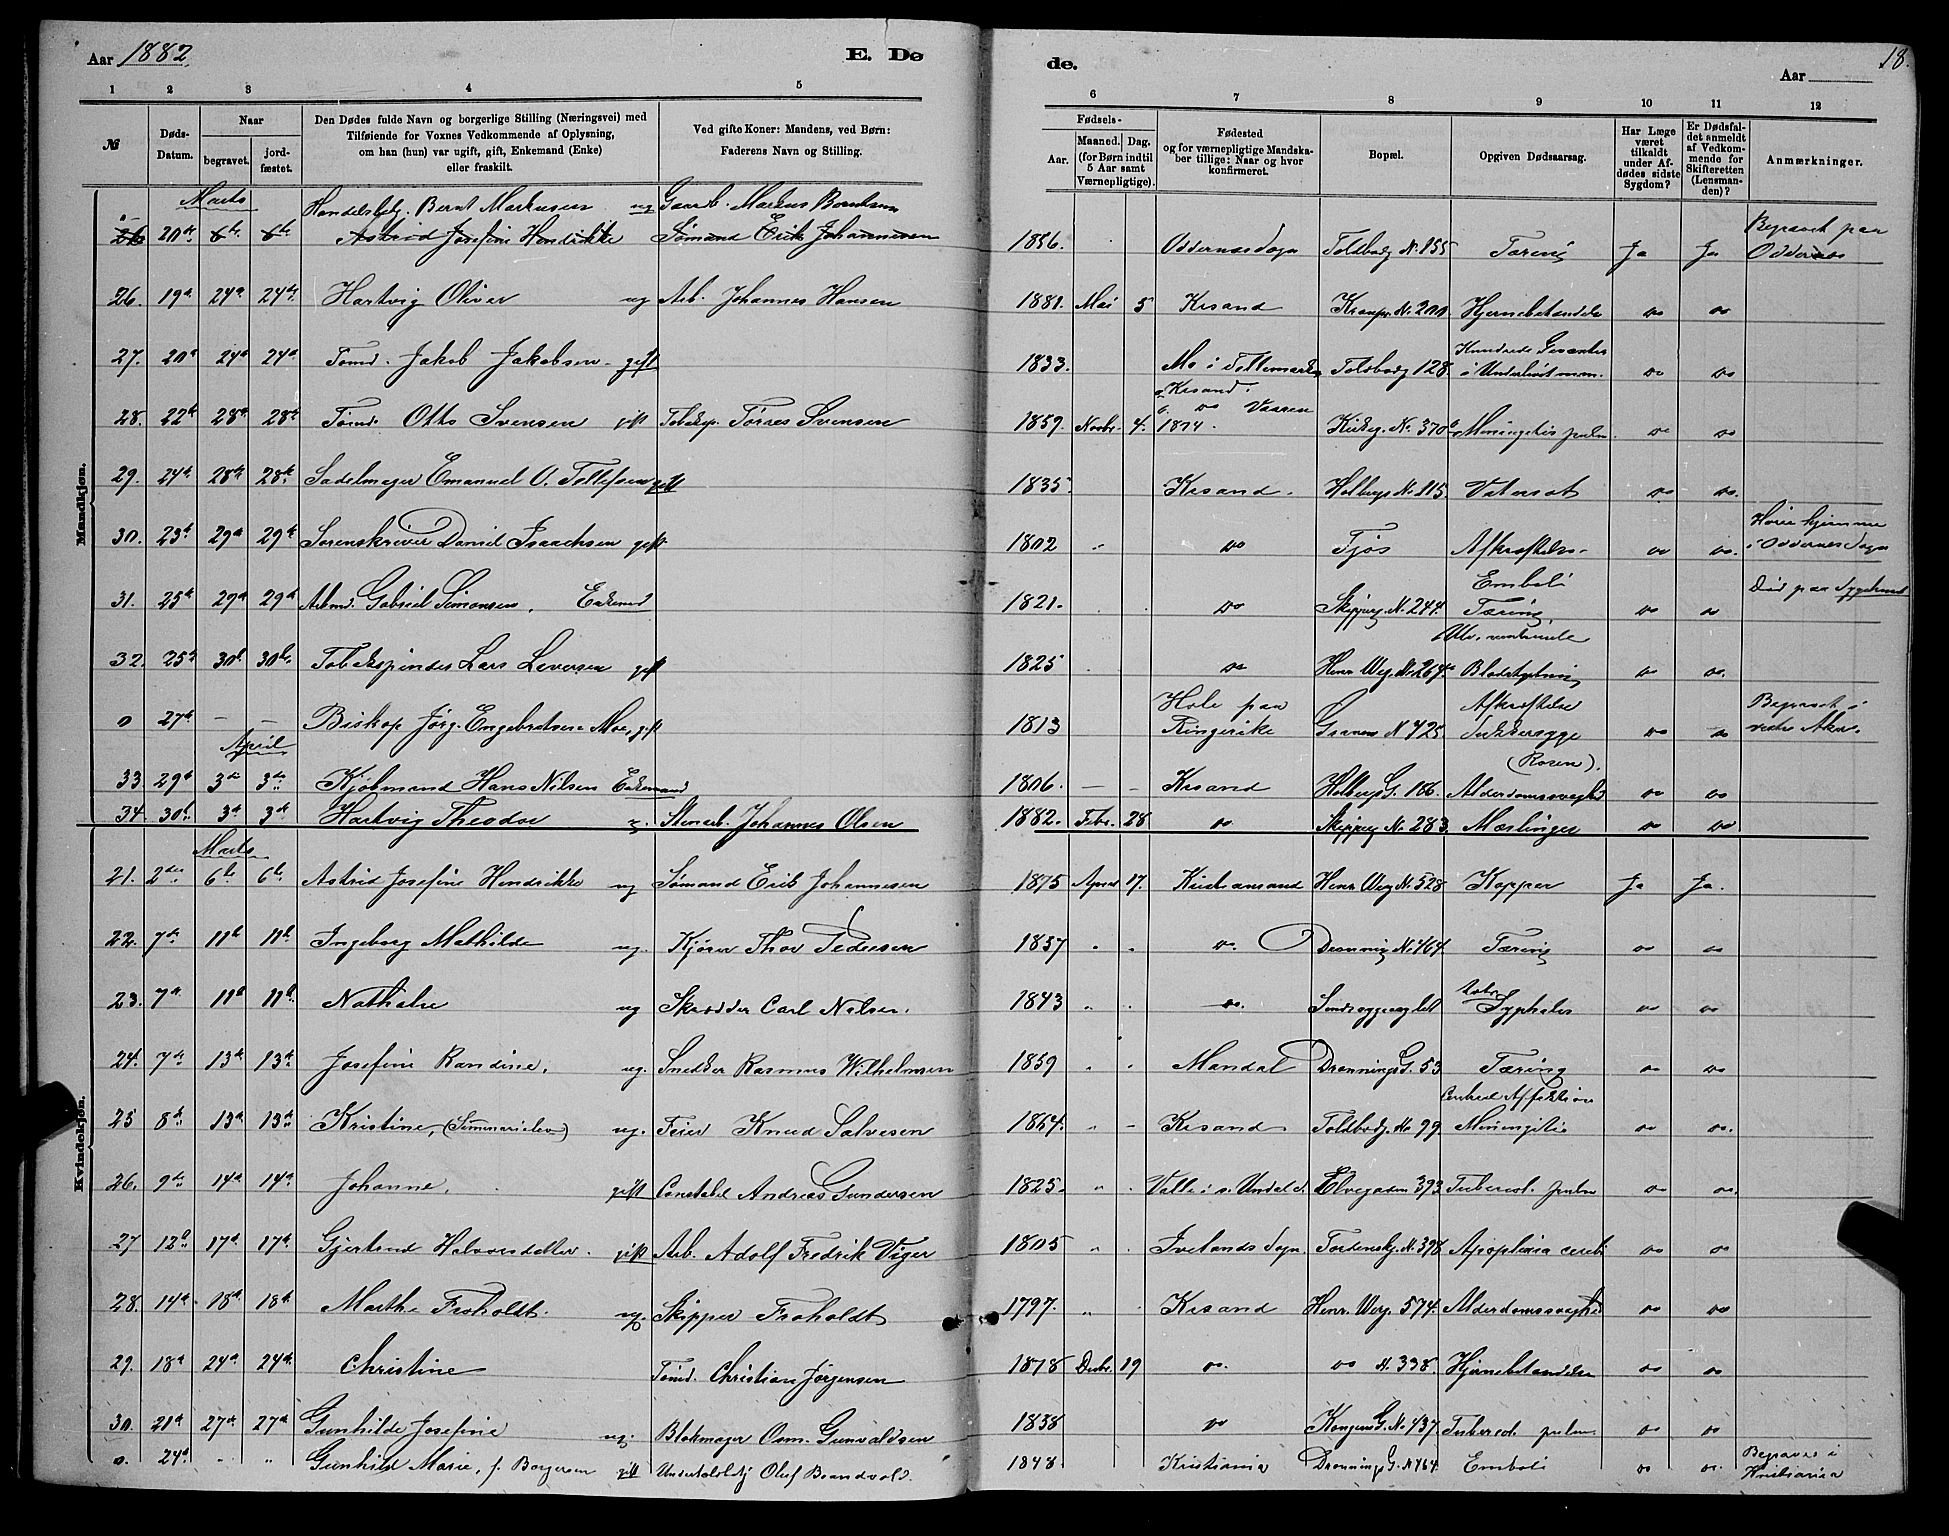 Aar 1882.
E. Dø
1 2 3 4 5
№
Døds-Datum.
Naar
begravet.
jordfæstet.
Den Dødes fulde Navn og borgerlige Stilling (Næringsvei) med
Tilføiende for Voxnes Vedkommende af Oplysning,
om han (hun) var ugift, gift, Enkemand (Enke)
eller fraskilt.
Ved gifte Koner: Mandens, ved Børn:
Faderens Navn og Stilling.
Mandkjøn.
Marts
Handelsbetj. Bernt Markussen ug Gaardb. Markus Berntsen
26 20de 6te 6te Astrid Josefine Hendrikke Sømand Erik Johannesen
26. 19d 24d 24de Hartvig Oliver ug Arb. Johannes Hansen
27. 20d 24d 24d Tømd. Jakob Jakobsen gift
28. 22d 28d 28d Tømd. Otto Svensen gift Tobaksp. Tørres Svensen
29. 24d 28d 28d Sadelmager Emanuel O. Tellefsen gift
30. 23d 29d 29d Sorenskriver Daniel Isaachsen gift
31. 25d 29d 29d Arbmd. Gabriel Simonsen, Enkemd
32. 25d 30d 30d Tobakspinder Lars Larsen gift
0 27d — — Biskop Jørg. Engebretsen Moe, gift
April
33. 29d 3die 3die Kjøbmand Hans Nilsen Enkemand
34. 30d 3d 3die Hartvig Theodor Stenarb. Johannes Olsen
Kvindekjøn.
Marts
21. 2den 6te 6te Astrid Josefine Hendrikke ug Sømand Erik Johannesen
22. 7de 11te 11te Ingeborg Mathilde ug. Kjører Thor Pedersen
23. 7d 11te 11te Nathalie ug Skrædder Carl Nilsen.
24. 7de 13d 13d Josefine Randine. ug. Snedker Rasmus Wilhelmsen
25 8de 13d 13d Kristine, (Seminarielev) ug. Feier Knud Salvesen
26. 9de 14d 14d Johanne. gift Constabel Andreas Gundersen
27 12d 17d 17d Gjertrud Halvorsdatter. gift Arb. Adolf Fredrik Viger
28. 14d 18d 18d Marthe Froholdt. ug. Skipper Froholdt
29. 18d 24d 24d Christine Tømd. Christian Jørgensen
30. 21d 27d 27d Gunhilde Josefine ug. Blokmager Osm. Gunvaldsen
0. 24d Gunhild Marie, f. Borgersen gift Undertoldbtj Oluf Brandvold.
de.
Aar
18.
6 7 8 9 10 11 12
Fødsels-
Aar.
Maaned. Dag.
(for Børn indtil
5 Aar samt
Værnepligtige).
Fødested
og for værnepligtige Mandskaber tillige: Naar og hvor
konfirmeret.
Bopæl.
Opgiven Dødsaarsag.
Har Læge
været
tilkaldt
under Afdødes sidste
Sygdom?
Er Dødsfaldet anmeldt
af Vedkommende for
Skifteretten
(Lensmanden)?
Anmærkninger.
1856. Oddernes Sogn Toldbodg. No. 155 Tæring Ja Ja Begravet paa Oddernes
1881. Mai 5 Krsand Kronpr. No. 200 Hjernebetændelse do do
1833. Mo i Tellemarken Toldbodg 128. Knudrede i Underlivet do do
1859. Novbr. 4. Krsand. do Vaaren 1874. Kirkeg. No. 370 Meningitis do do
1835. Krsand. Holbergs No. 115. Vatersot do do.
1802 do Tjøs Afkræftelse. do do. Hører hjemme i Oddernes Sogn
1821. do Skipperg. No. 244. Emboli Tæring do do Død paa Sygehuset
1825 do Henr. Werg. No. 264. Blodstyrtning do do.
1813 Hole paa Ringerike Gravens No 425. Afkræftelse Sukkersyge do do Begravet i vestre Aker.
1806. — — Krsand Holbergs G. 186. (Rosen). Alderdomssvaghed do do
1882. Febr. 28 do. Skipperg No. 283. Mæslinger do do
1875 April 17. Kristiansand Henr. Werg No. 528 Kopper Ja Ja.
1857 do. Dronning. No. 464. Tæring do do
1843 do. Sindssygeasylet Syphilis do do
1859 Mandal Dronnings G. 53 Tæring do do
1864. Krsand Toldbodg. No 99 Cerebral Affektion Meningitis do do.
1825. Valle i s. Undal Elvegaden 393 Tubercl. pulm do do.
1805 Ivelands Sogn. Tordenskj. No. 398 Apoplexia cerebri do do
1797. Krsand Henr. Werg. 574. Alderdomssvaghed do do
1878 Decbr. 19 do. do No. 338. Hjernebetændelse do do
1838 do Kongens G. No 437. Tubercl. pulm do do
1848 Kristiania Dronnings G. No 464. Emboli do do. Begraves i Kristiania